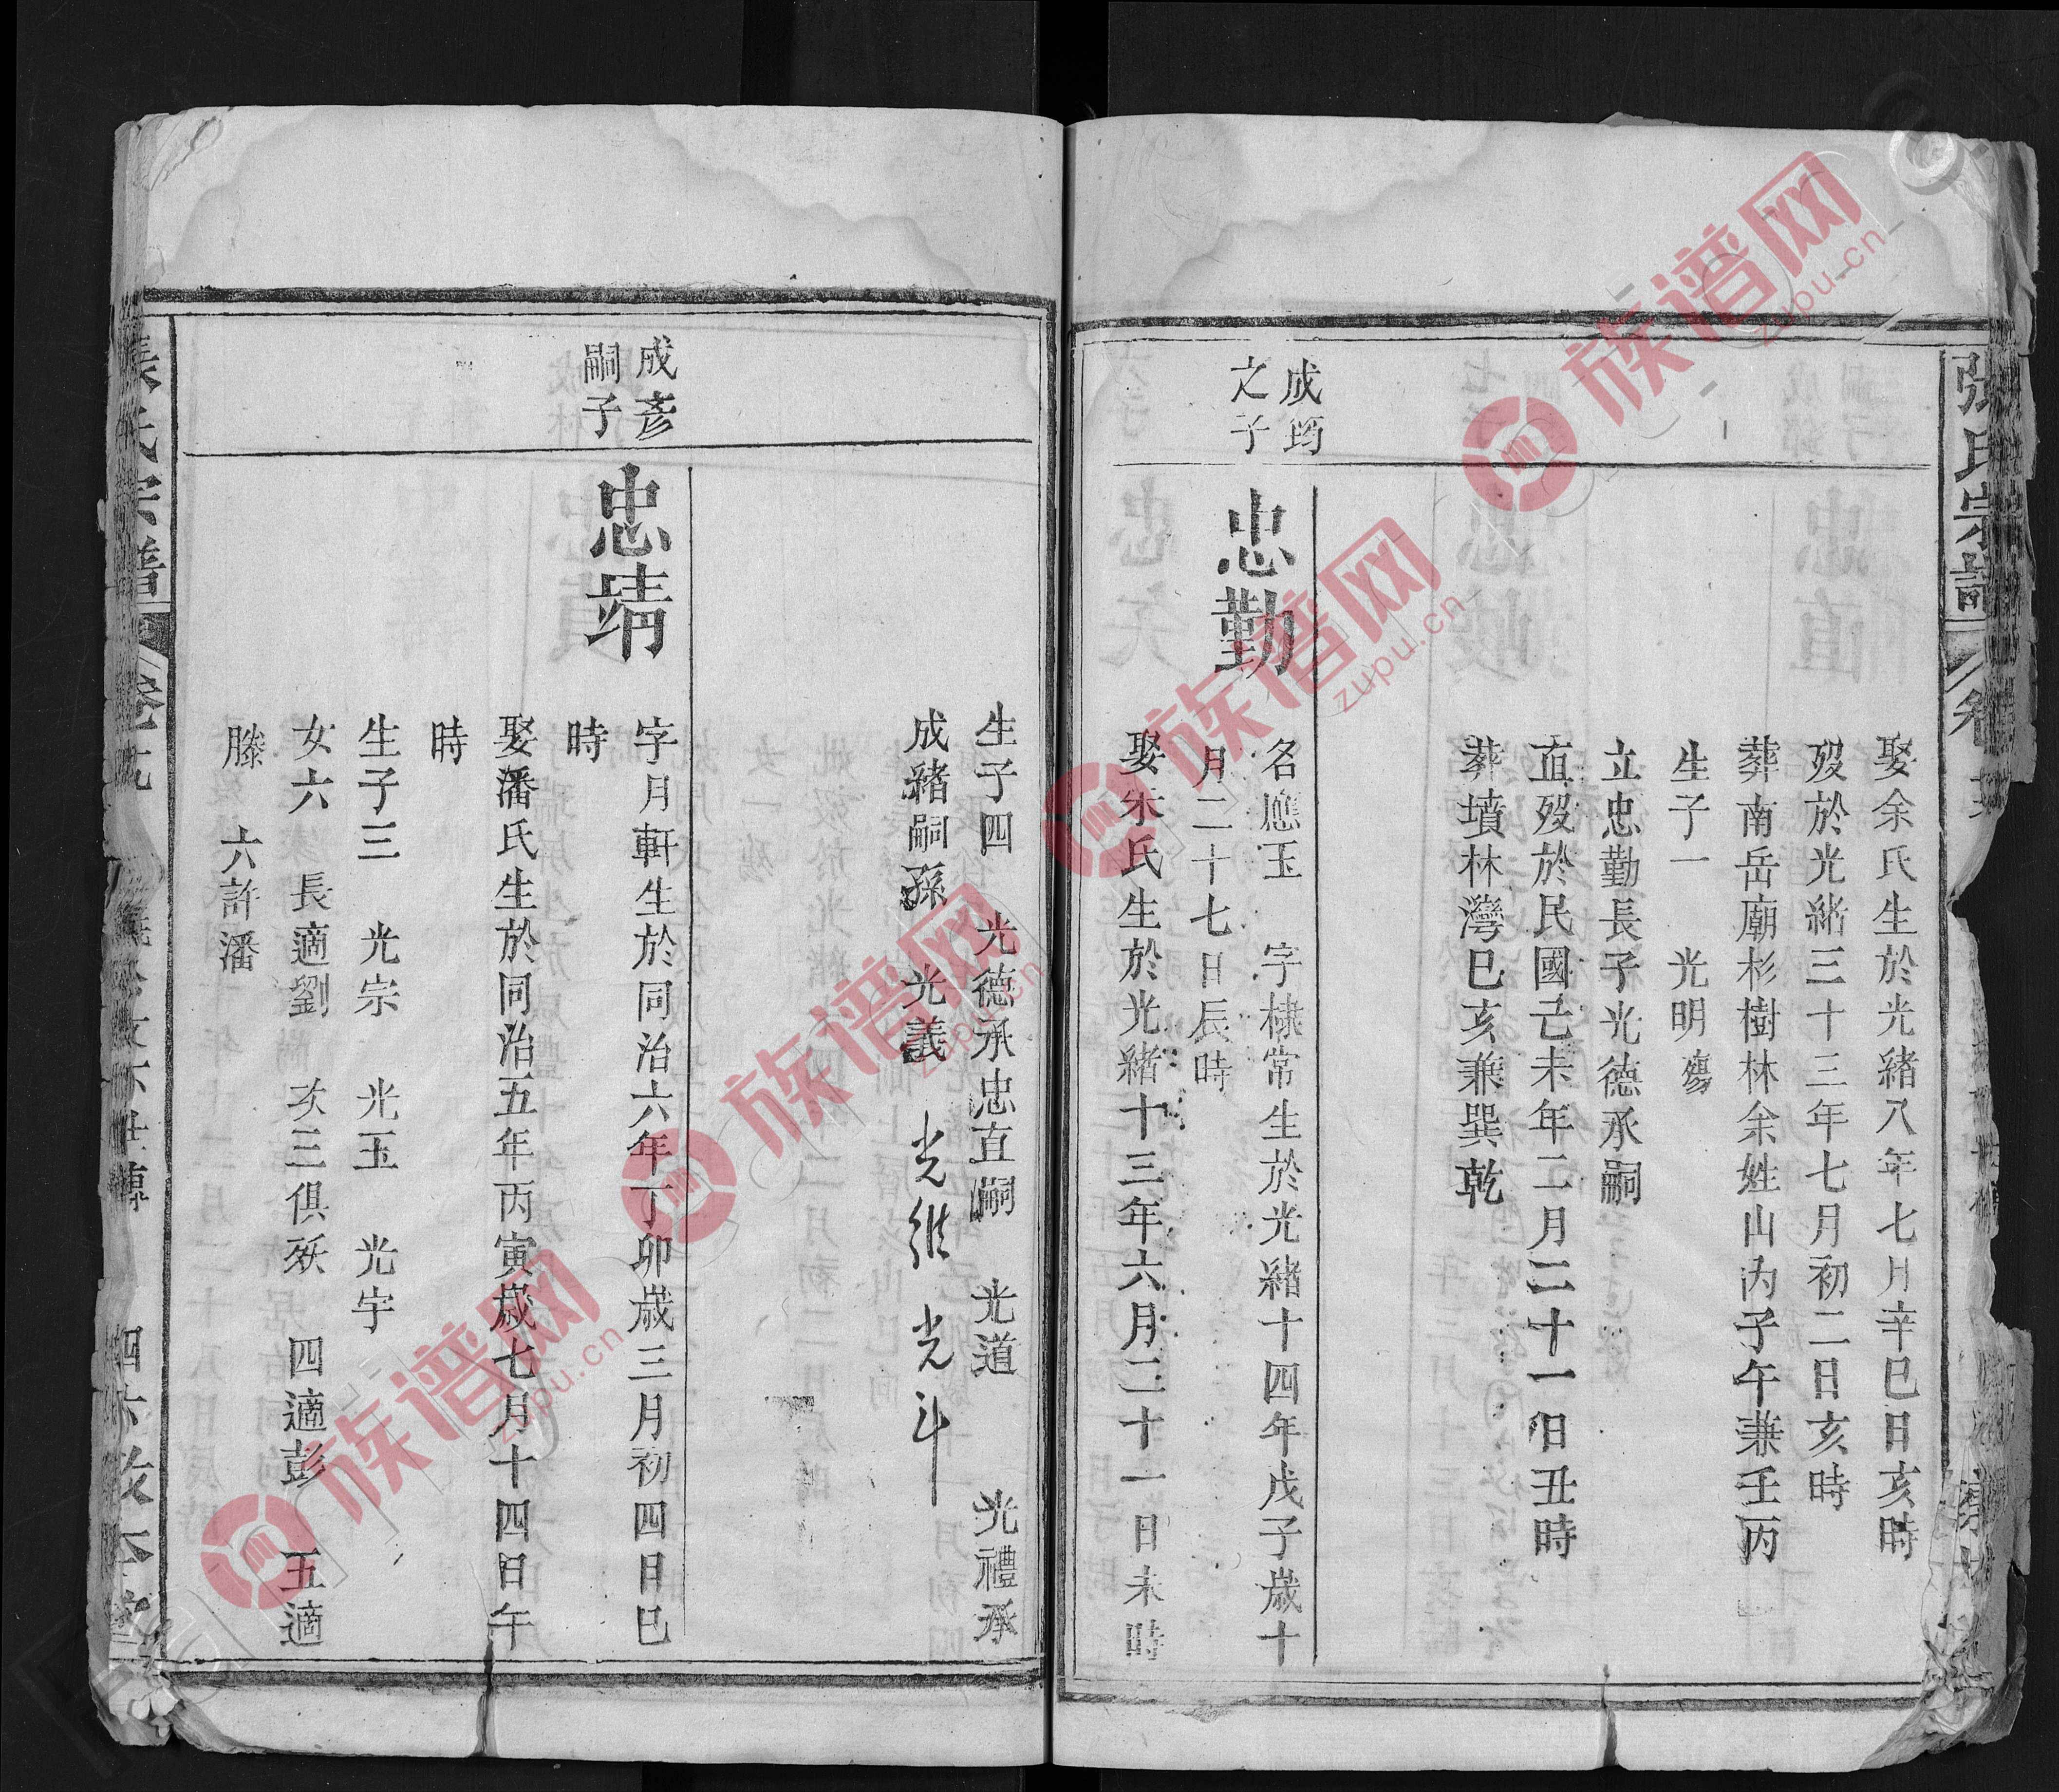 張氏宗譜
娶余氏生於光緒八年七月辛巳日亥時
歿於光緒三十三年七月初二日亥時
葬南岳廟杉樹林余姓山內子午兼壬丙
生子一　光明殤
立忠勤長子光德承嗣
直歿於民國己未年二月二十一日丑時
葬墳林灣巳亥兼巽乾
成均
之子
忠勤
名應玉　字棣常生於光緒十四年戊子歲十
月二十七日辰時
娶朱氏生於光緒十三年六月二十一日未時
生子四　光德承忠直嗣　光道　光禮承
成緒嗣孫　光義　光繼　光斗
成彥
嗣子
忠靖
字月軒生於同治六年丁卯歲三月初四日巳
時
娶潘氏生於同治五年丙寅歲七月十四日午
時
生子三　光宗　光玉　光宇
女六　長適劉　次三俱殀　四適彭　五適
滕　六許潘
族谱网
zupu.cn
族谱网
zupu.cn
族谱网
zupu.cn
族谱网
zupu.cn